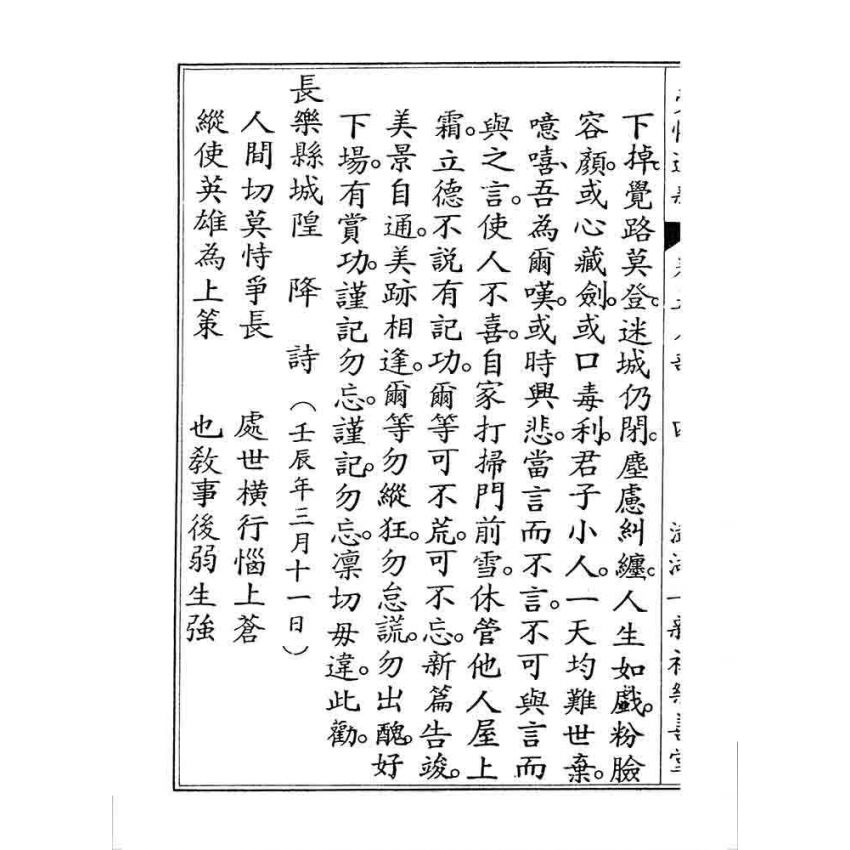 澎湖一新社樂善堂
下掉。覺路莫登。迷城仍閉。塵慮糾纏。人生如戲。粉臉
容顏。或心藏劍。或口毒利。君子小人。一天均難世棄。
噫嘻、吾為爾嘆。或時興悲。當言而不言。不可與言而
與之言。使人不喜。自家打掃門前雪。休管他人屋上
霜。立德不說有記功。爾等可不荒。可不忘。新篇告竣。
美景自通。美跡相逢。爾等勿縱狂。勿怠謊。勿出醜。好
下場。有賞功。謹記勿忘。謹記。勿忘。凜切毋違。此勸。
長樂縣城隍 降 詩(壬辰年三月十一日)
人間切莫恃爭長 處世橫行惱上蒼
縱使英雄為上策 也敎事後弱生強